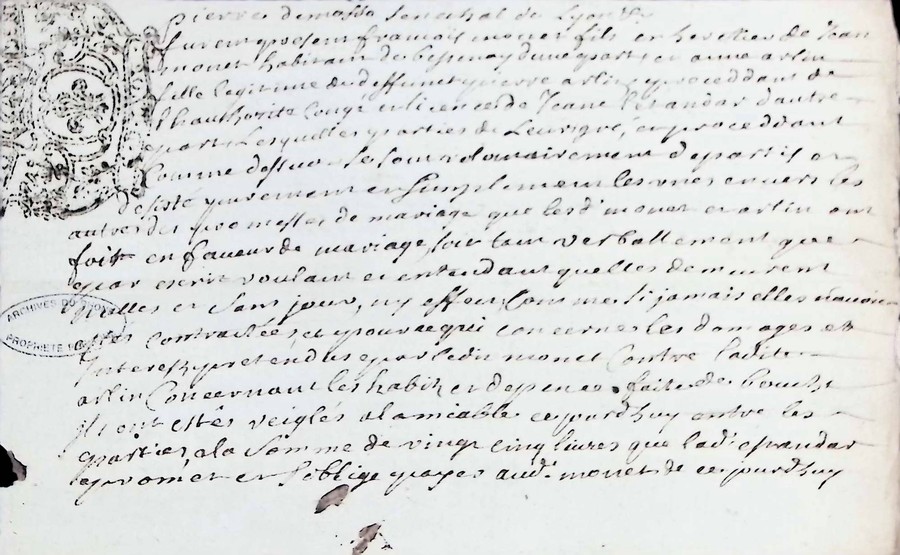 Pierre demasso senechal de Lyon
furent present francois monet fils et heretier de Jean
monet habitant de bessenay dune part, et anne arlin
fille legitime du deffunct pierre arlin proceddant de
lhauthorite Congé et licences de Jeane estandar dautre
part, Lesquelles parties de Leur gré, et proceddant
Comme dessus se sont volontairement departis et
desisté purement et simplement les unes envers les
autres des promesses de mariage que lesd. monet et arlin ont
fait en faveur de mariage, soit tant verballement que
par escrit voulant et entendant quelles demeurent
nulles et sans jour, ny effect, Comme si jamais elles navoient
estes contractées, et pour ce qui concerne les domages et
Interest pretendus par ledit monet Contre ladite
arlin Concernant les habitz et depence faite de bouche
Ils ont estés reiglés a lamiable cejourdhuy entre les
parties, a la somme de vingt cinq livres que lad. estandar
promet et soblige payer aud. monet de cejourdhuy
ARCHIVES DU
PROPRIETE